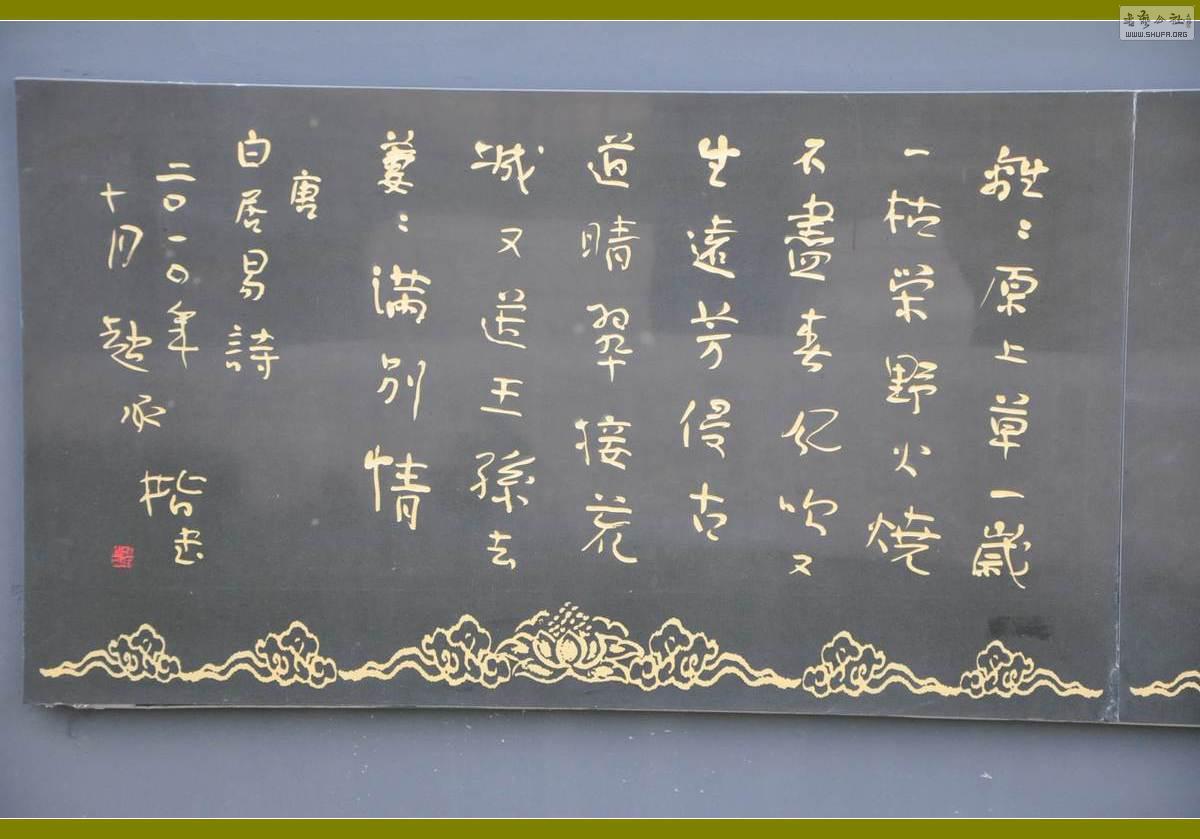 離〻原上草一歲
一枯榮野火燒
不盡春風吹又
生遠芳侵古
道晴翠接荒
城又送王孫去
萋〻滿別情
唐
白居易詩
二〇一〇年
十月趙承楷書
書藝公社
WWW.SHUFA.ORG